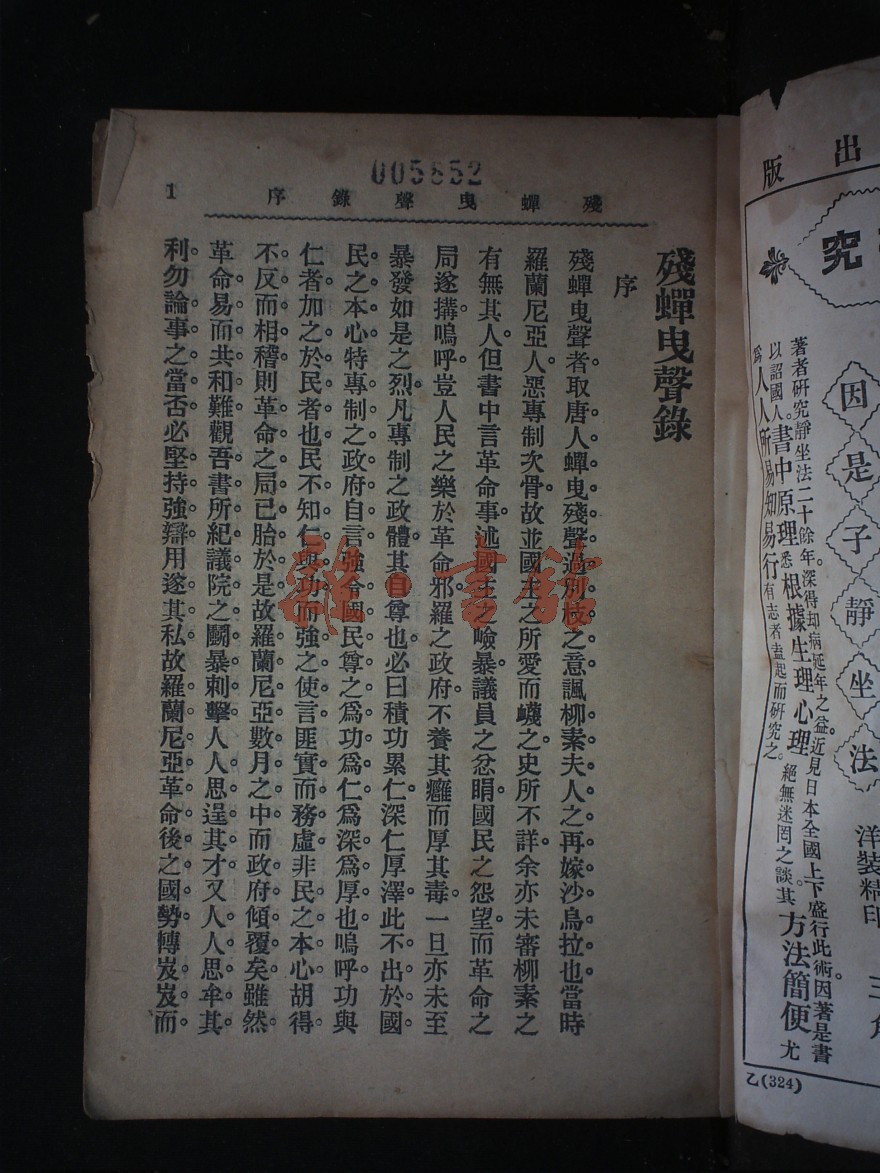 005852
殘蟬曳聲錄序
1
殘蟬曳聲錄
序
殘蟬曳聲者。取唐人蟬曳殘聲過別枝之意。諷柳素夫人之再嫁沙烏拉也。當時
羅蘭尼亞人。惡專制次骨。故並國主之所愛而衊之。史所不詳。余亦未審柳素之
有無其人。但書中言革命事。述國王之嶮暴。議員之忿睊。國民之怨望。而革命之
局遂搆。嗚呼。豈人民之樂於革命邪。羅之政府。不養其癰而厚其毒。一旦亦未至
暴發如是之烈。凡專制之政體。其自尊也。必曰積功累仁。深仁厚澤。此不出於國
民之本心。特專制之政府自言。強令國民尊之為功為仁為深為厚也。嗚呼。功與
仁者。加之於民者也。民不知仁與功。而強之使言。匪實而務虛。非民之本心。胡得
不反而相稽。則革命之局。已胎於是。故羅蘭尼亞數月之中。而政府傾覆矣。雖然。
革命易而共和難。觀吾書所紀議院之鬭暴刺擊。人人思逞其才。又人人思牟其
利。勿論事之當否。必堅持強辯。用遂其私。故羅蘭尼亞革命後之國勢。轉岌岌而
雜·書館
出版
究
因是子靜坐法
著者研究靜坐法二十餘年。深得却病延年之益。近見日本全國上下盛行此術。因著是書
以詔國人。書中原理悉根據生理心理絕無迷罔之談。其方法簡便尤
為人人所易知易行有志者盍起而研究之。
洋裝精印
三角
乙(324)